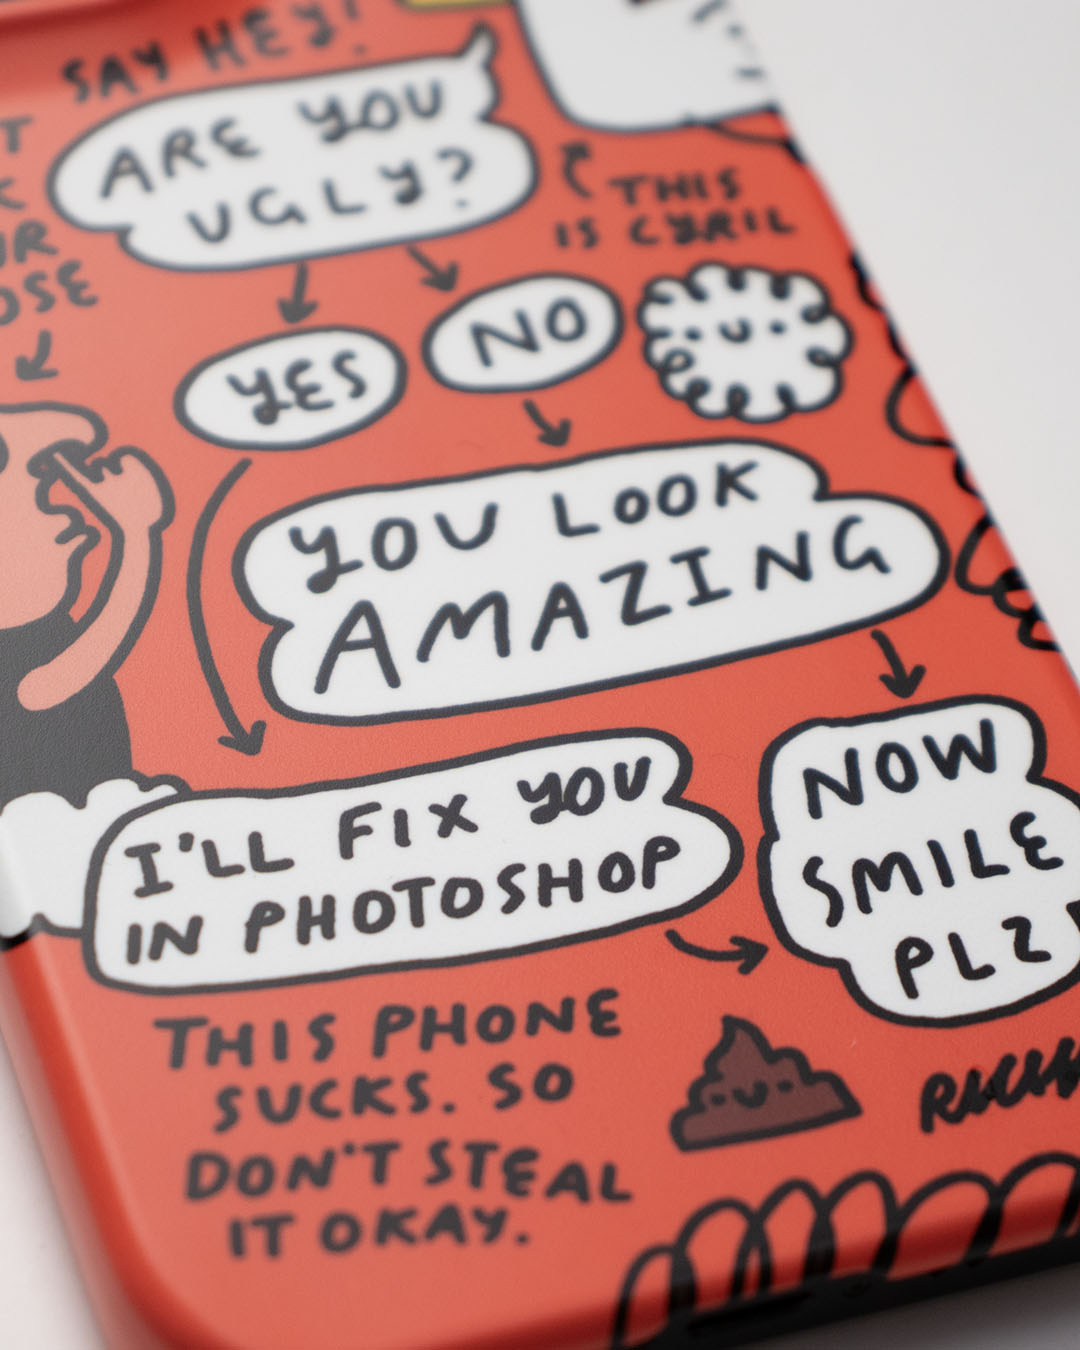 SAY HEY!
ARE YOU
UGLY?
THIS
IS CYRIL
YES
NO
YOU LOOK
AMAZING
I'LL FIX YOU
IN PHOTOSHOP
NOW
SMILE
PLZ
THIS PHONE
SUCKS. SO
DON'T STEAL
IT OKAY.